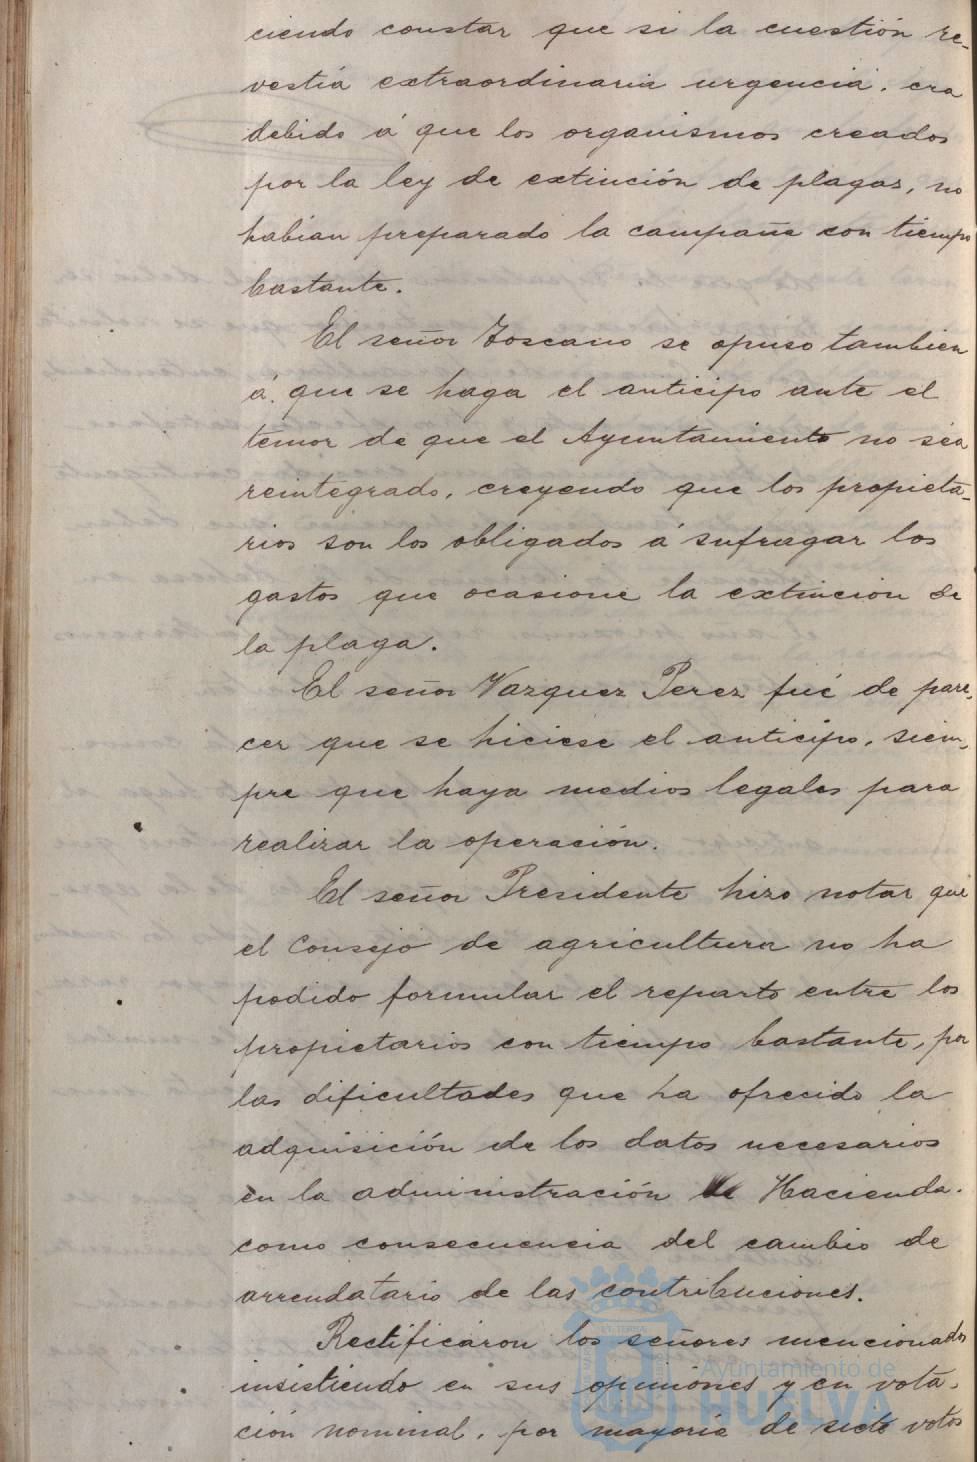 ciendo constar que si la cuestión re-
vestía extraordinaria urgencia, era
debido á que los organismos creados
por la ley de extinción de plagas, no
habian preparado la campaña con tiempo
bastante.
El señor Toscano se opuso tambien
á que se haga el anticipo ante el
temor de que el Ayuntamiento no sea
reintegrado, creyendo que los propieta-
rios son los obligados á sufragar los
gastos que ocasione la extincion de
la plaga.
El señor Vazquez Perez fué de pare-
cer que se hiciese el anticipo, siem-
pre que haya medios legales para
realizar la operación.
El señor Presidente hizo notar que
el Consejo de agricultura no ha
podido formular el reparto entre los
propietarios con tiempo bastante, por
las dificultades que ha ofrecido la
adquisición de los datos necesarios
en la administración de Hacienda.
como consecuencia del cambio de
arrendatario de las contribuciones.
Rectificaron los señores mencionados
insistiendo en sus opiniones y en vota-
ción nominal, por mayoría de siete votos
Ayuntamiento de
HUELVA